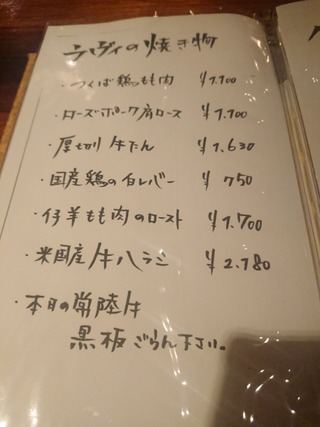 ラヴィの焼き物
・つくば鶏もも肉 ¥1.100
・ローズポーク肩ロース ¥1.100
・厚切 牛たん ¥1.630
・国産鶏の白レバー ¥750
・仔羊もも肉のロースト ¥1.700
・米国産牛ハラミ ¥2.180
・本日の常陸牛
黒板ごらん下さい。